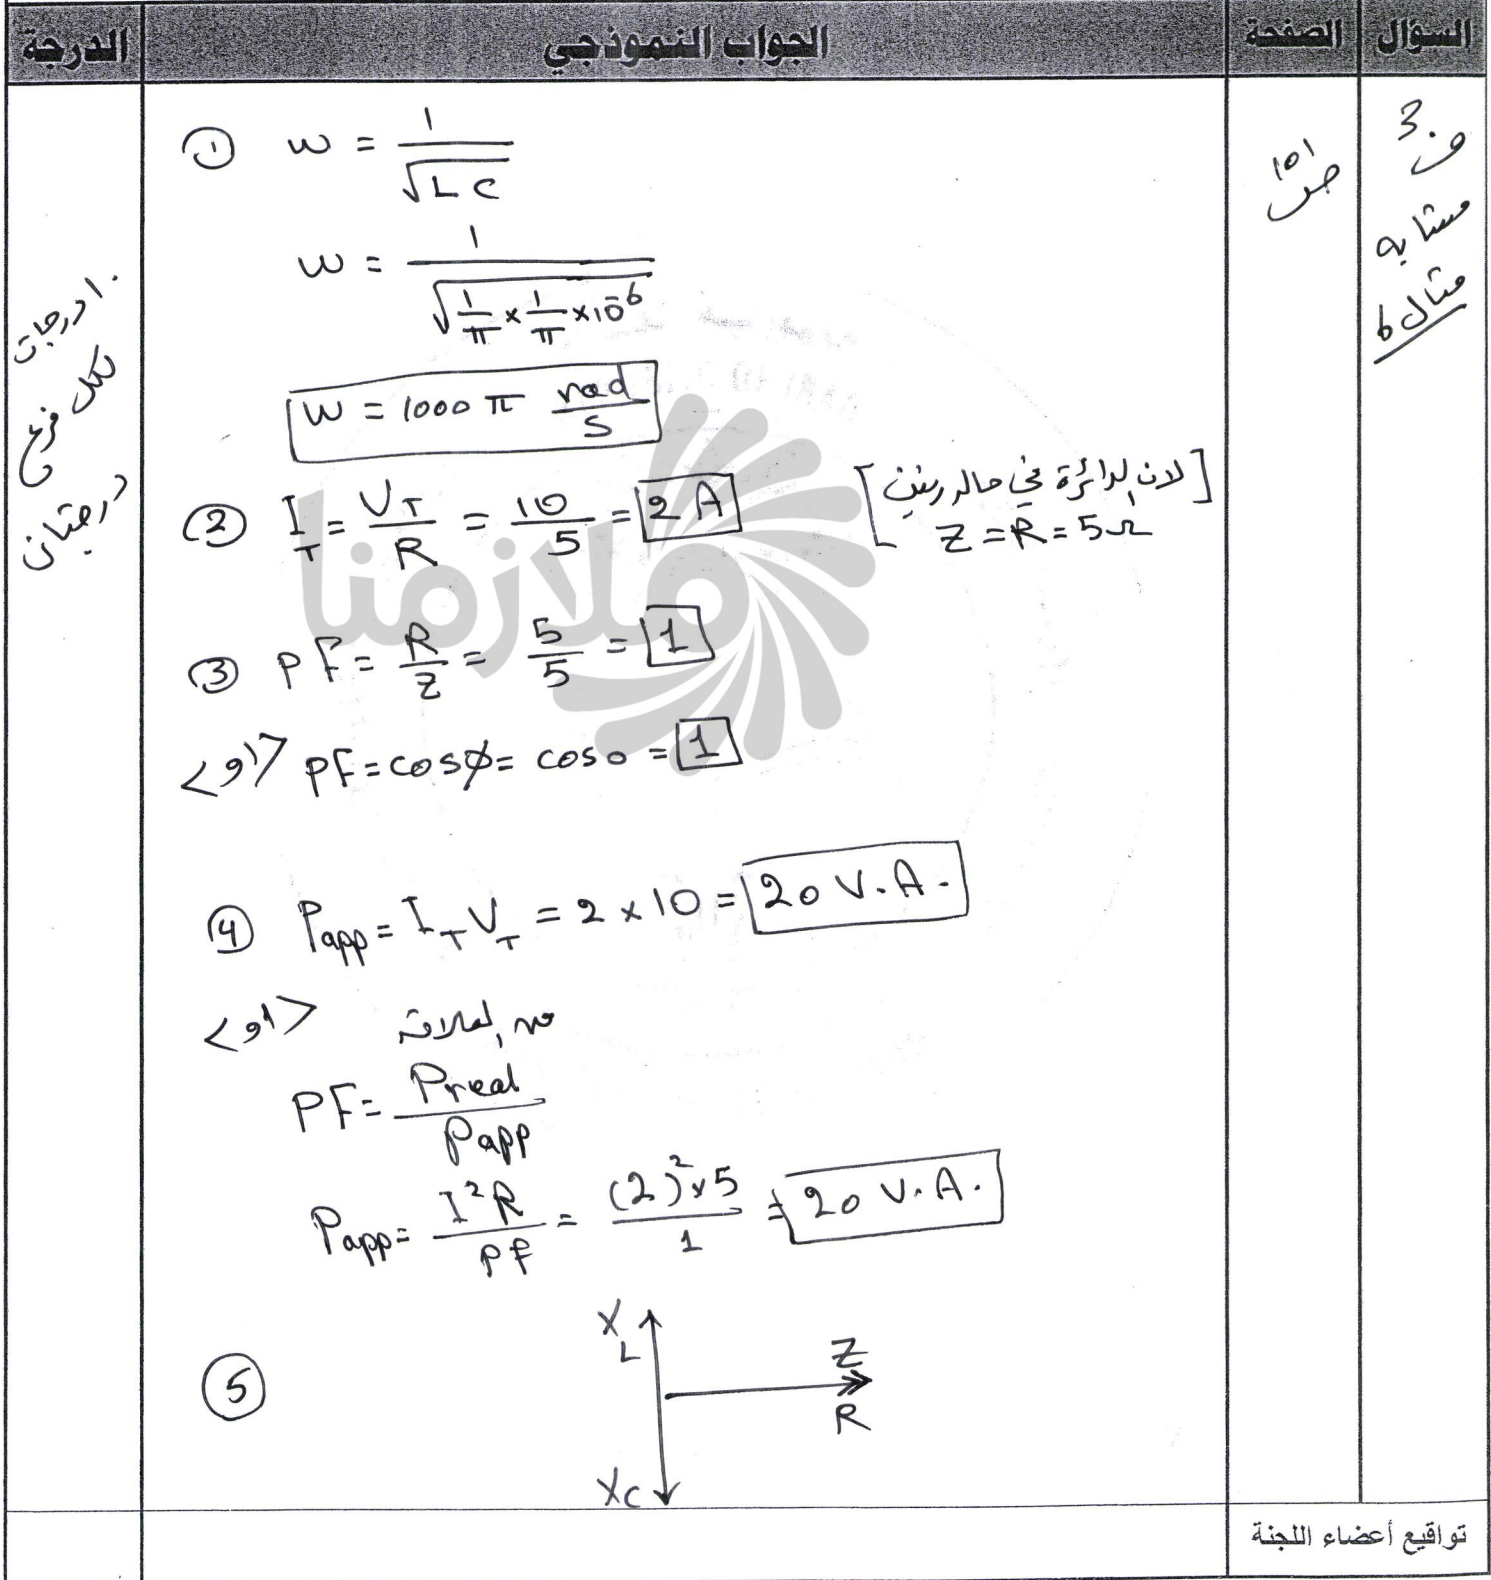 السؤال الصفحة الجواب النموذجي الدرجة
ف.3
مشابه
مثال 6
ص 151
١٠ درجات
لكل فرع
درجتان
① w = 1/√LC
w = 1/√(1/π × 1/π × 10⁻⁶)
w = 1000 π rad/s
② I_T = V_T/R = 10/5 = 2 A [لان الدائرة في حالة رنين
Z = R = 5Ω]
③ PF = R/Z = 5/5 = 1
<او> PF = cosφ = cos0 = 1
④ Papp = I_T V_T = 2 × 10 = 20 V.A.
<او> من العلاقة
PF = Preal/Papp
Papp = I²R/Pf = (2)²×5/1 = 20 V.A.
⑤
X_L
Z
R
X_C
ملازمنا
تواقيع أعضاء اللجنة